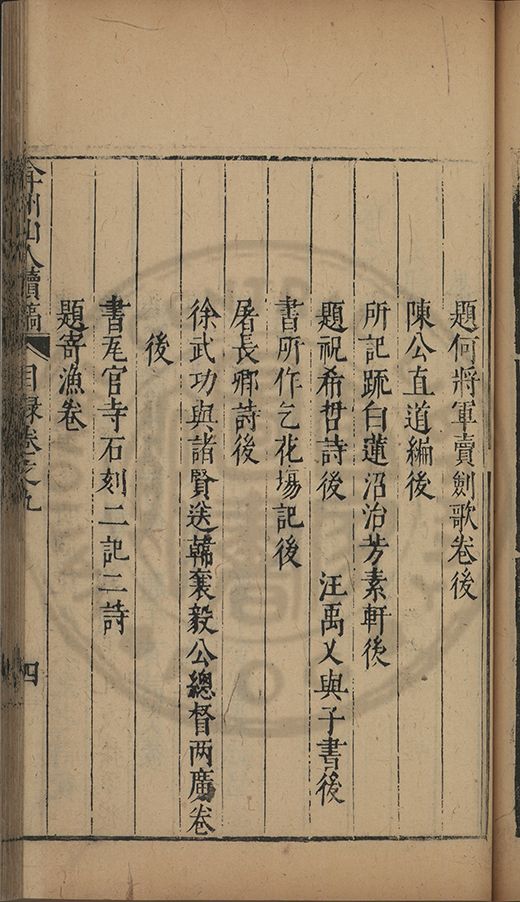 題何將軍賣劍歌卷後
陳公直道編後
所記䟽白蓮沼治芳素軒後
題祝希哲詩後　汪禹乂與子書後
書所作乞花塲記後
屠長卿詩後
徐武功與諸賢送韓襄毅公總督两廣卷
後
書瓦官寺石刻二記二詩
題寄漁卷
弇州山人續稿　目録卷之九　四